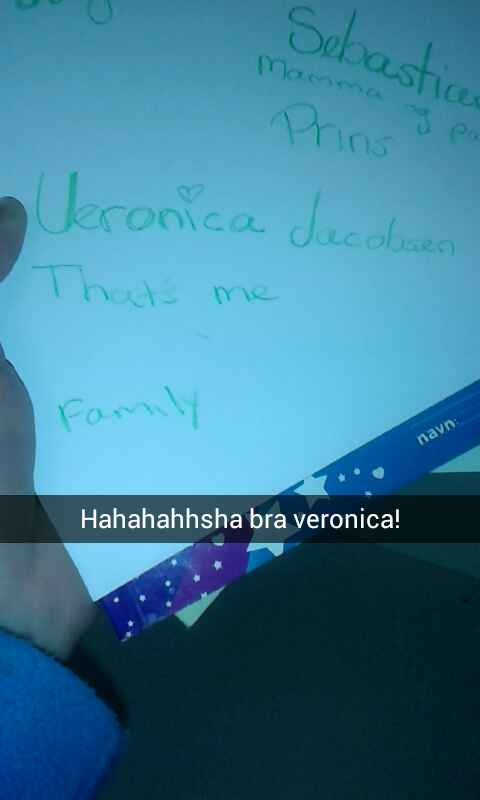 Sebastian
mamma og pa
Prins
Veronica Jacobsen
That's me
Family
navn:
Hahahahhsha bra veronica!